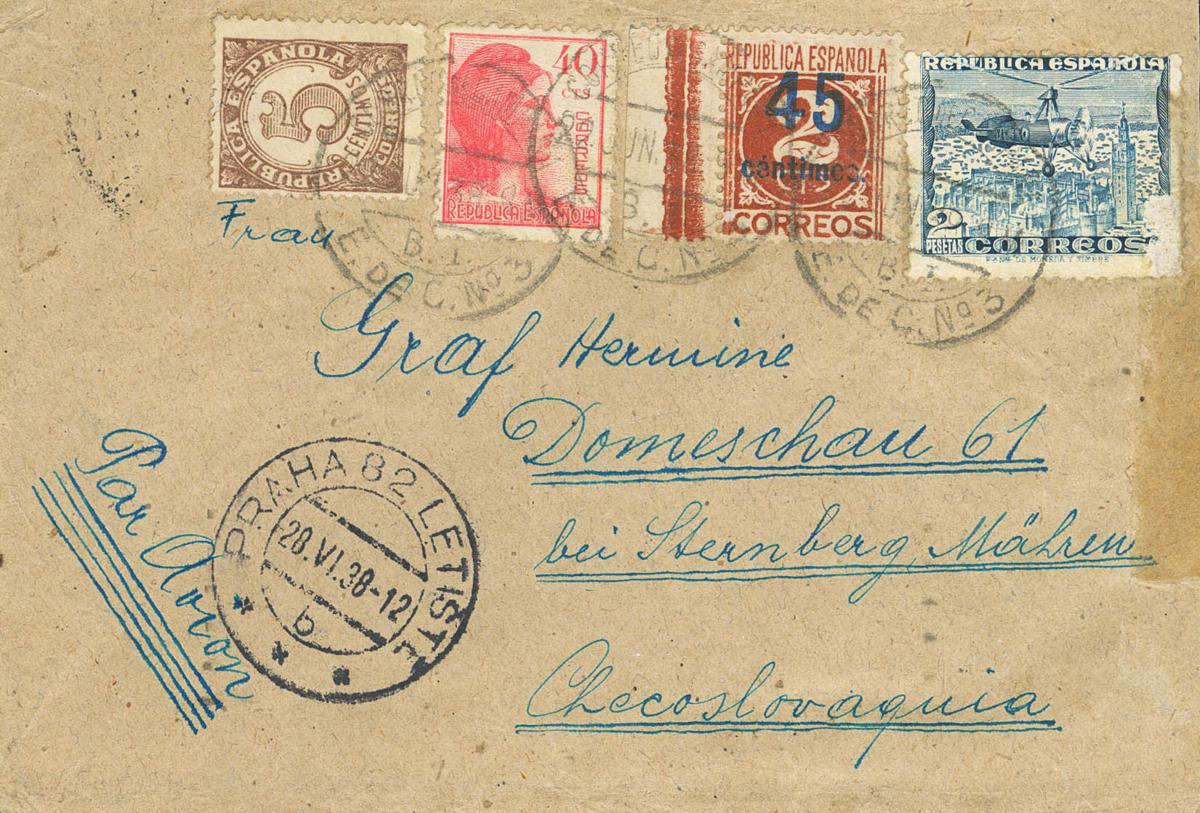 REPUBLICA ESPAÑOLA
5
CENTIMOS
CORREOS
40
CTS
REPÚBLICA ESPAÑOLA
REPUBLICA ESPAÑOLA
45
2
céntimos.
CORREOS
REPUBLICA ESPAÑOLA
2
PESETAS
CORREOS
F.N. DE MONEDA Y TIMBRE
JUN.
B.I.
E. DE C. Nº 3
B.
DE C. Nº
B.I.
E. DE C. Nº 3
Frau
Graf Hermine
Domeschau 61
bei Sternberg, Mähren
Checoslovaquia
Par Avion
PRAHA 82 LETIŠTĚ
28.VI.38-12
b